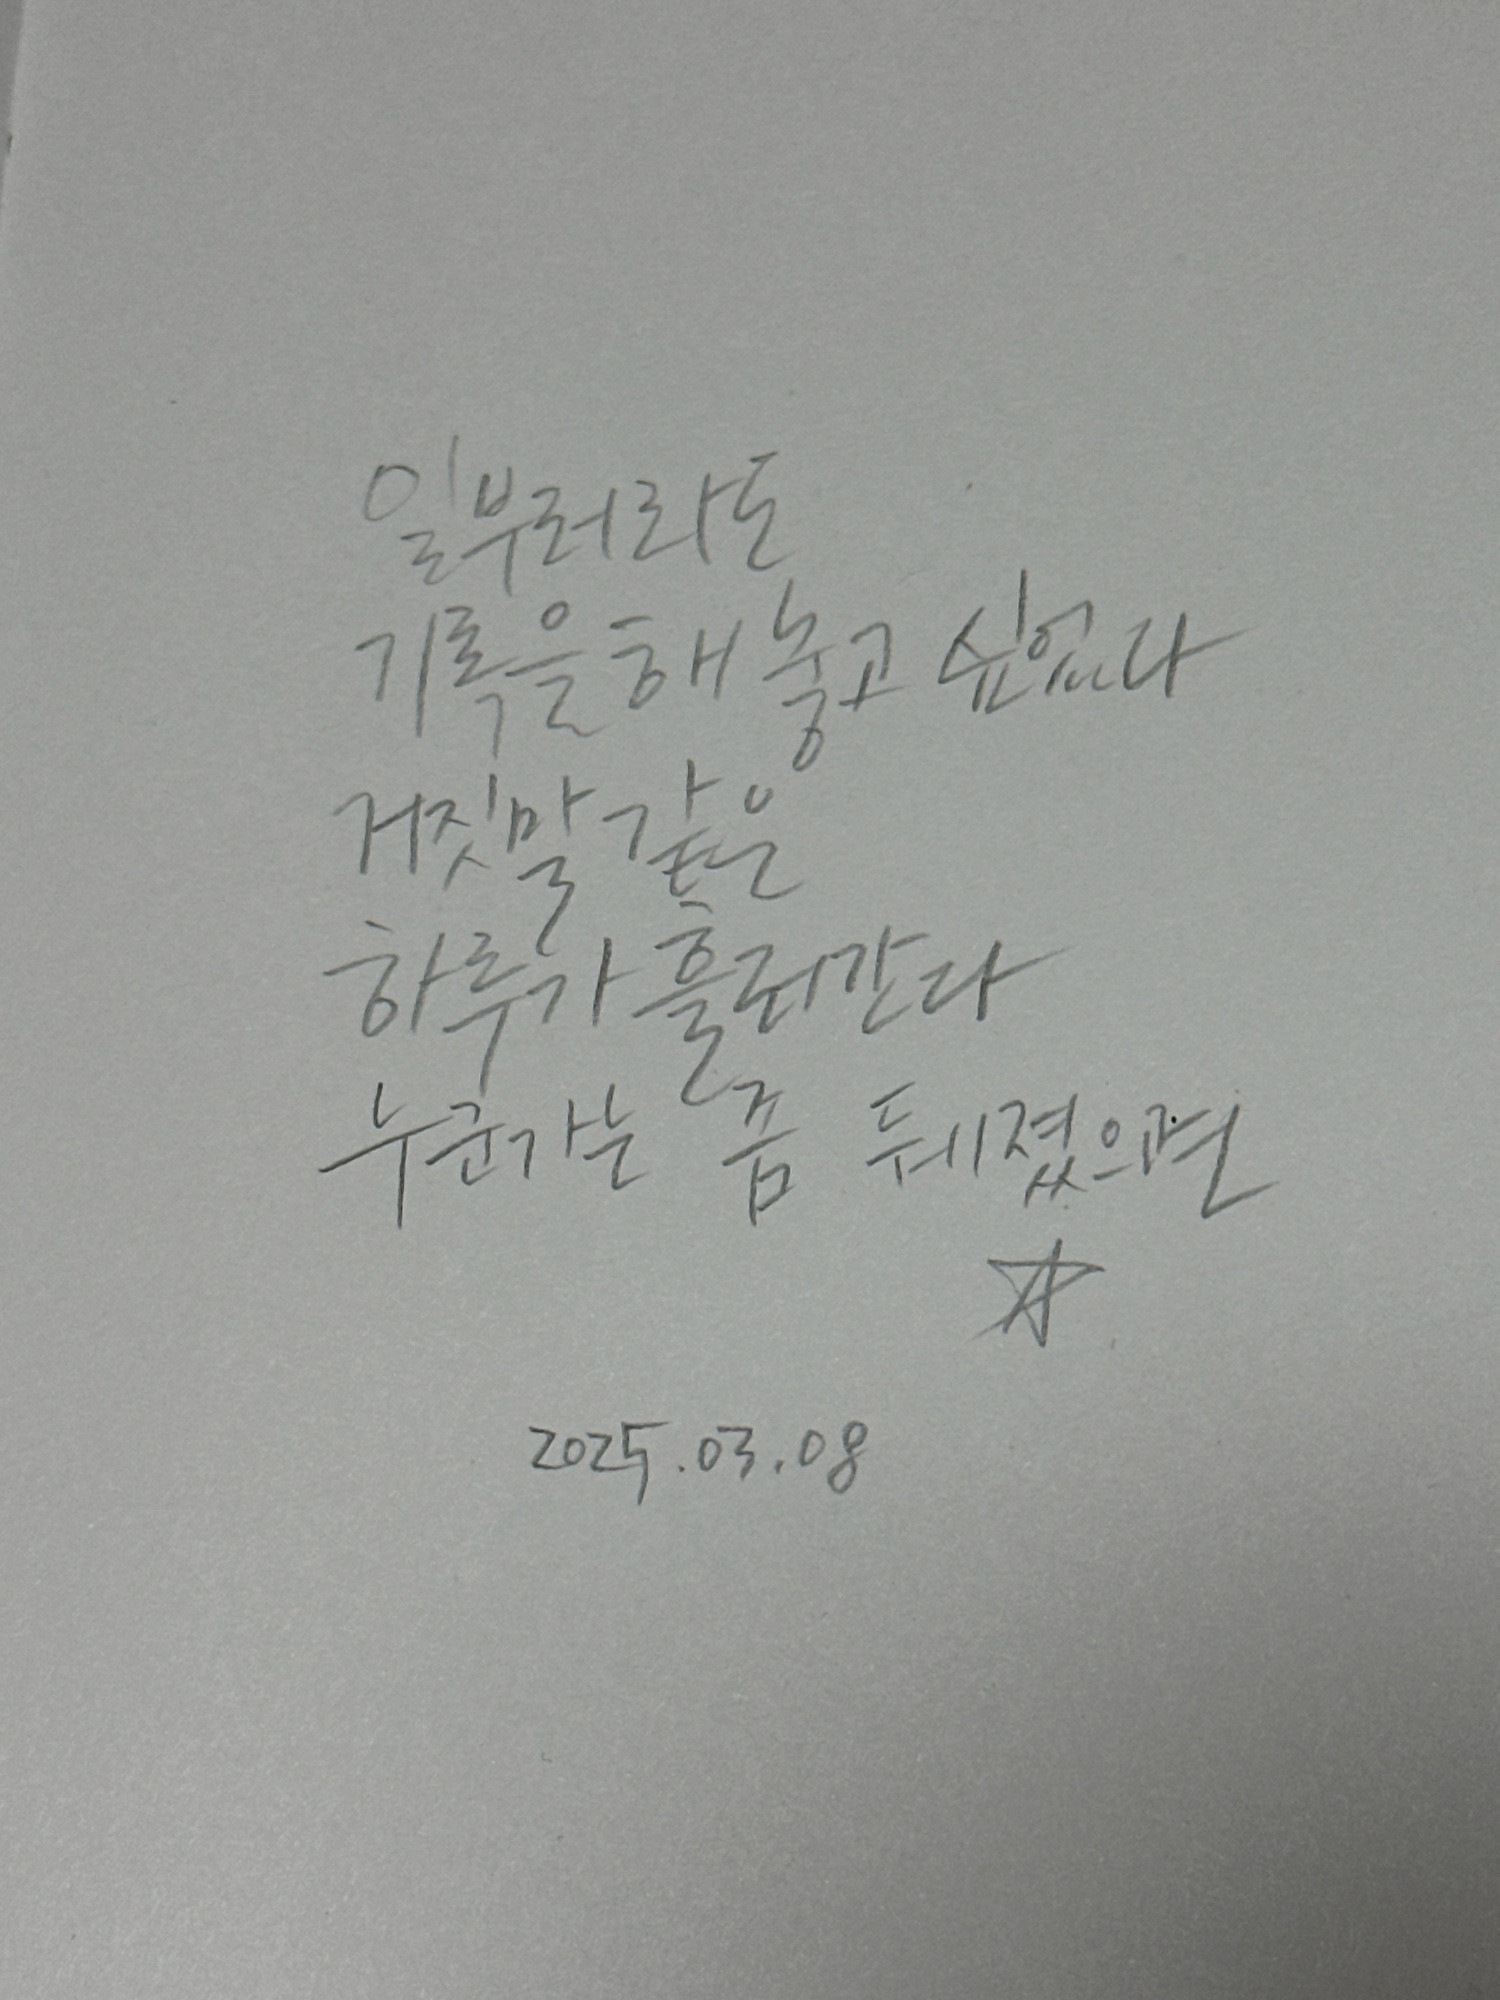 일부러라도
기록을 해 놓고 싶었다
거짓말 같은
하루가 흘러간다
누군가는 좀 뒈졌으면
2025.03.08